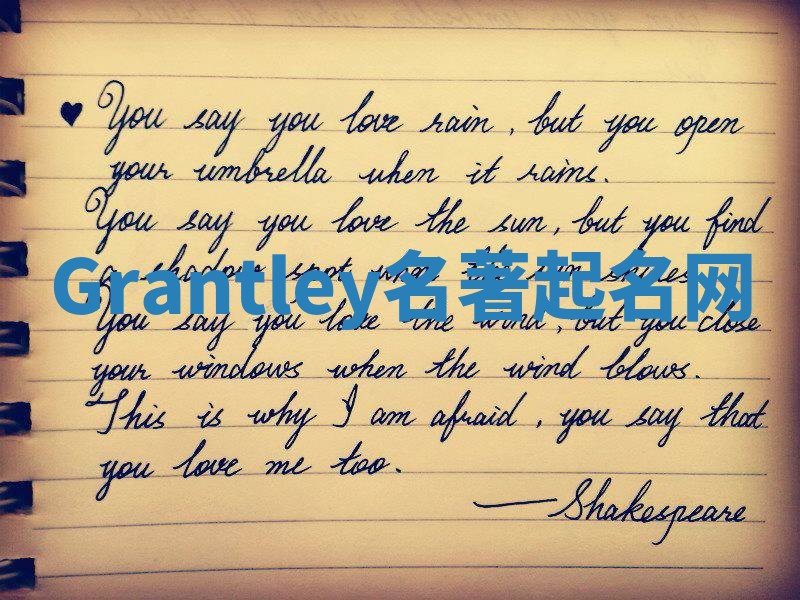 You say you love rain, but you open
your umbrella when it rains.
You say you love the sun, but you find
a shadow spot when the sun shines.
Grantley名著起名网
You say you love the wind, but you close
your windows when the wind blows.
This is why I am afraid, you say that
you love me too.
—Shakespeare